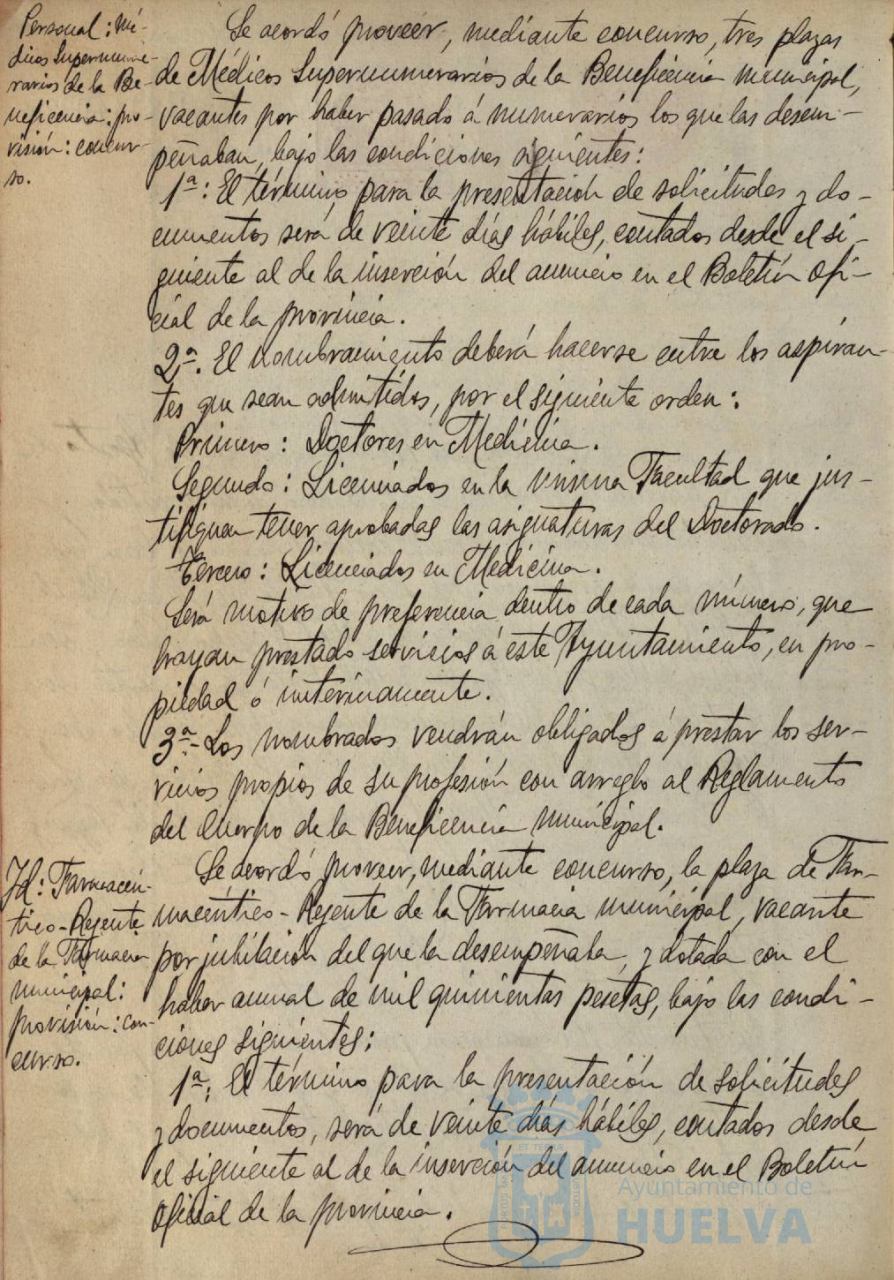 Personal: Mé-
dicos Supernume-
rarios de la Be-
neficencia: pro-
visión: concur-
so.
Se acordó proveer, mediante concurso, tres plazas
de Médicos Supernumerarios de la Beneficencia municipal,
vacantes por haber pasado á numerarios los que las desem-
peñaban, bajo las condiciones siguientes:
1ª: El término para la presentación de solicitudes y do-
cumentos será de veinte días hábiles, contados desde el si-
guiente al de la inserción del anuncio en el Boletín Ofi-
cial de la provincia.
2ª. El nombramiento deberá hacerse entre los aspiran-
tes que sean admitidos, por el siguiente orden:
Primero: Doctores en Medicina.
Segundo: Licenciados en la misma Facultad que jus-
tifiquen tener aprobadas las asignaturas del Doctorado.
Tercero: Licenciados en Medicina.
Será motivo de preferencia dentro de cada número, que
hayan prestado servicios á este Ayuntamiento, en pro-
piedad ó interinamente.
3ª- Los nombrados vendrán obligados á prestar los ser-
vicios propios de su profesión con arreglo al Reglamento
del Cuerpo de la Beneficencia municipal.
Id: Farmacéu-
tico-Regente
de la Farmacia
municipal:
provisión: con-
curso.
Se acordó proveer, mediante concurso, la plaza de Far-
macéutico-Regente de la Farmacia municipal, vacante
por jubilación del que la desempeñaba, y dotada con el
haber anual de mil quinientas pesetas, bajo las condi-
ciones siguientes:
1ª: El término para la presentación de solicitudes
y documentos, será de veinte días hábiles, contados desde
el siguiente al de la inserción del anuncio en el Boletín
Oficial de la provincia.
Ayuntamiento de
HUELVA